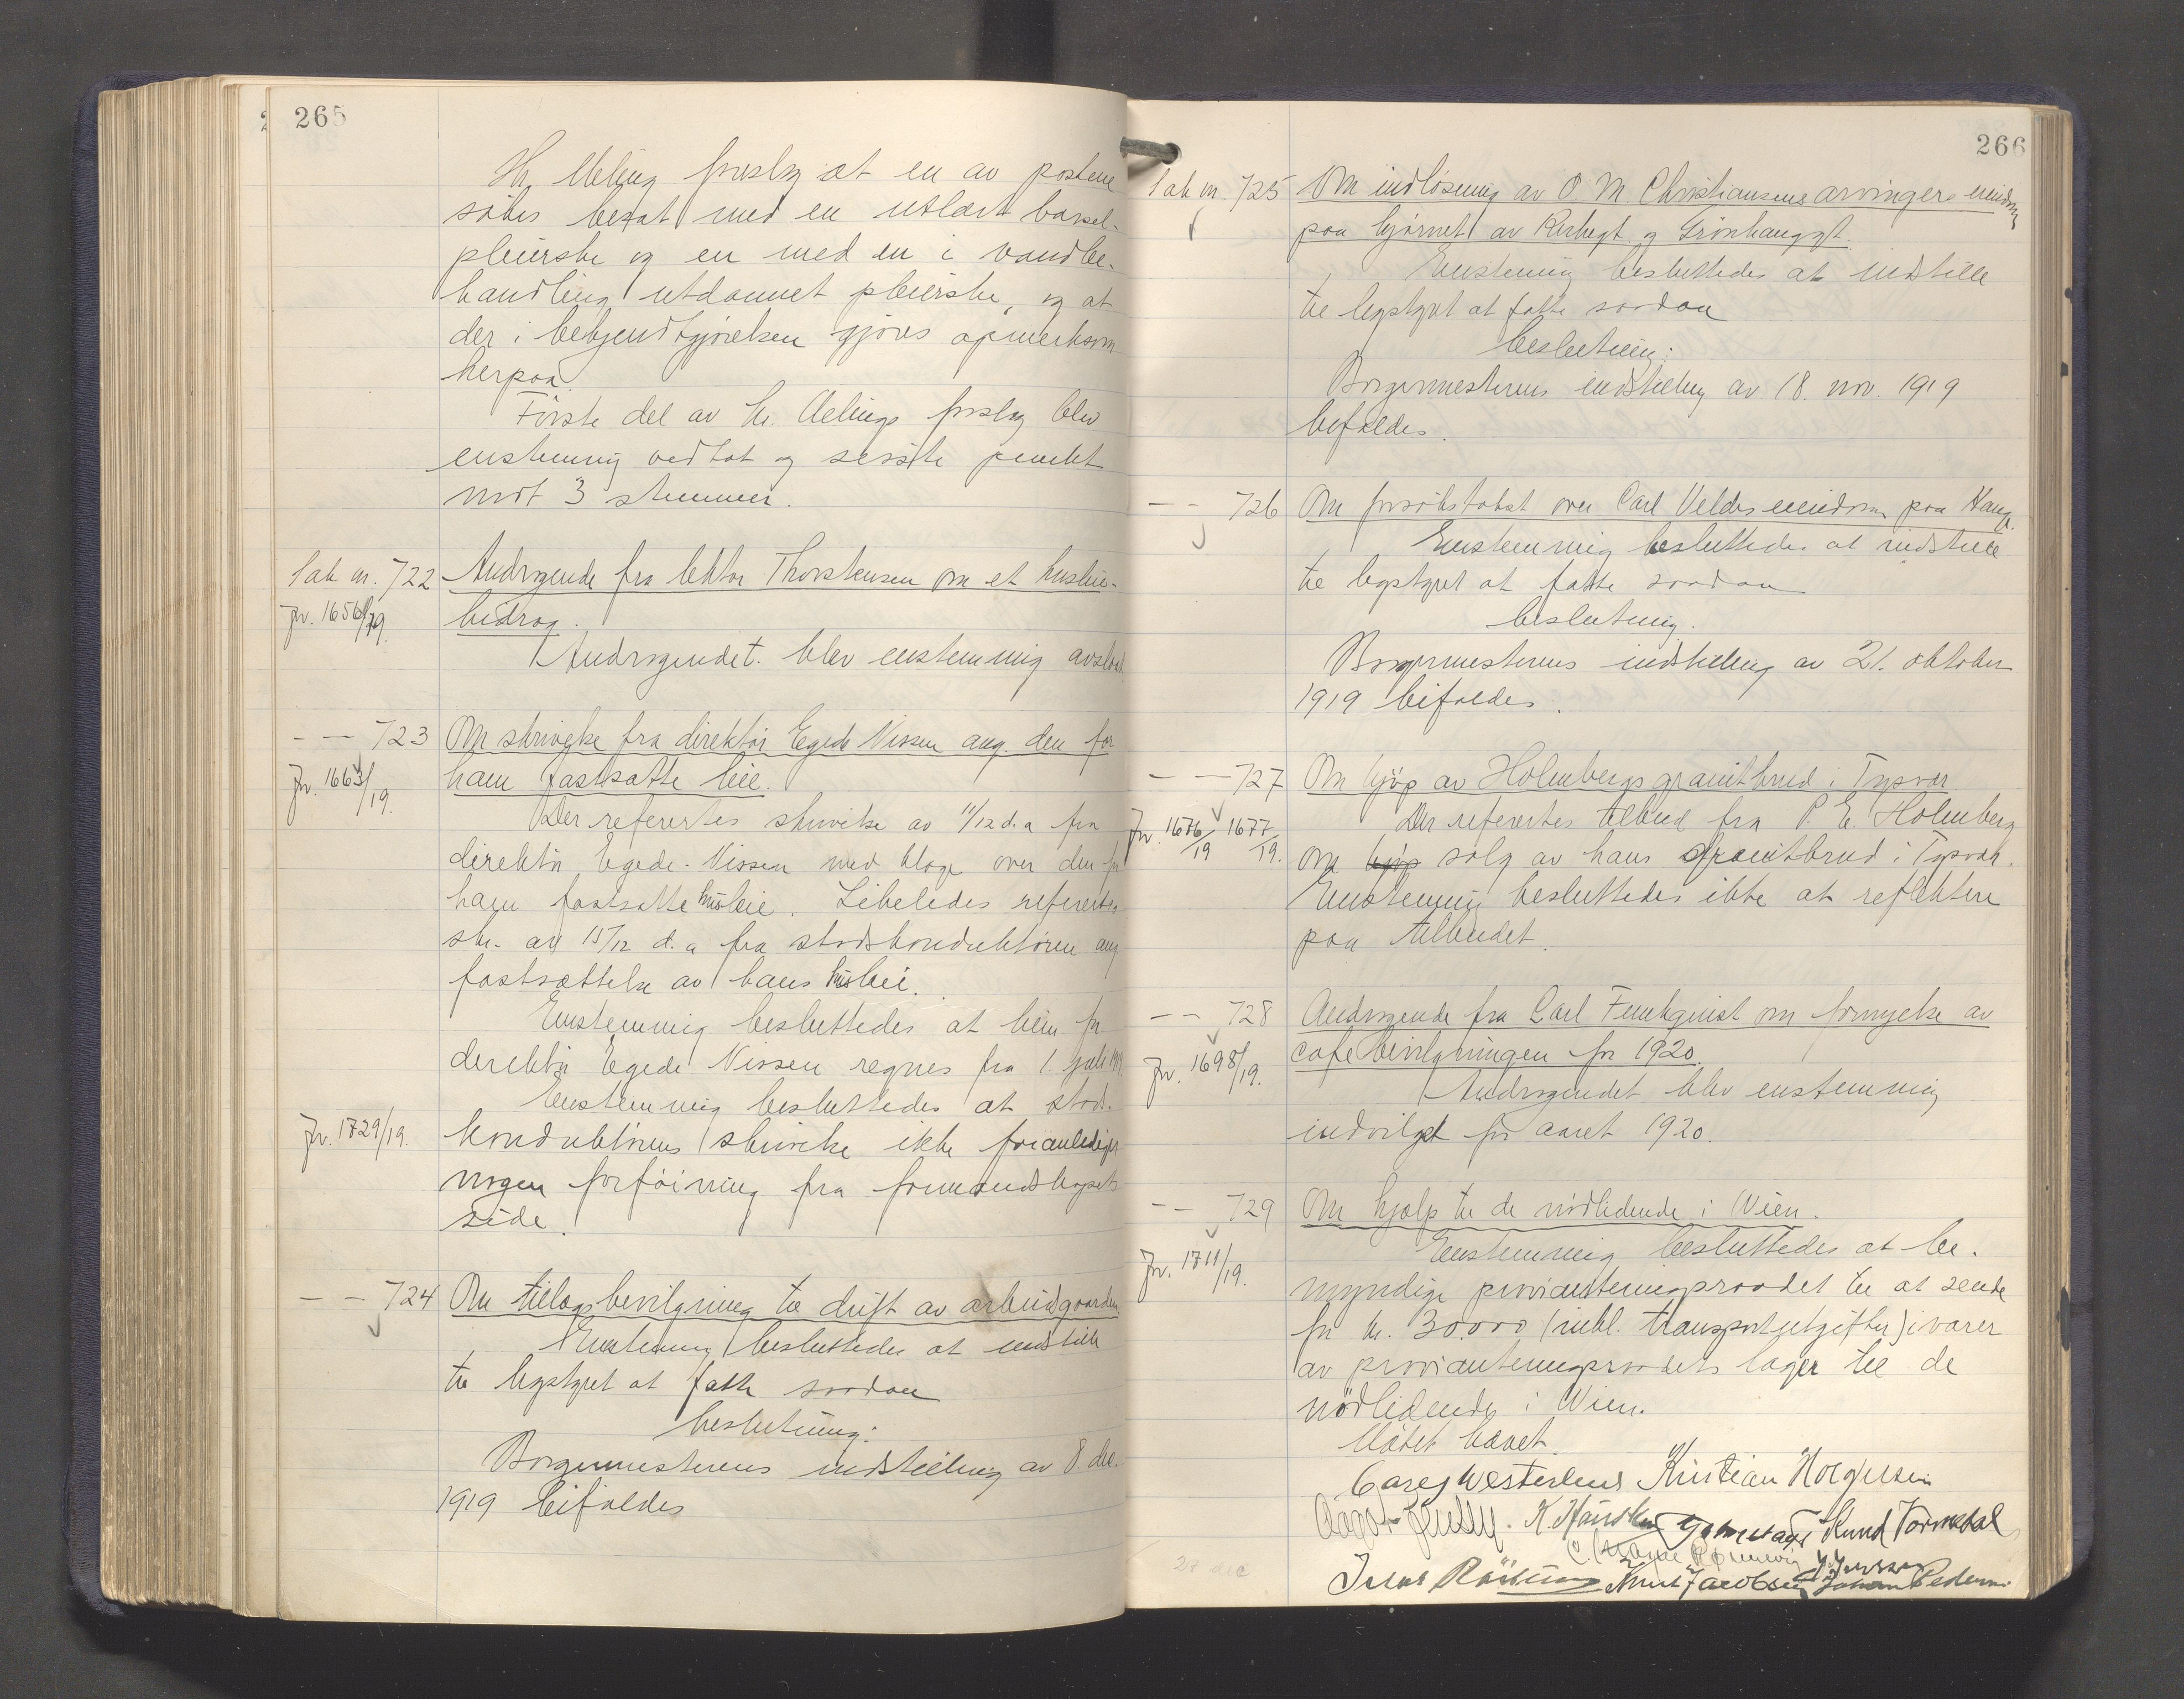 265
Hr. Meling foreslog at en av postene
søkes besat med en utlært barsel-
pleierske og en med en i vandbe-
handling utdannet pleierske, og at
der i bekjendtgjørelsen gjøres opmerksom
herpaa.
Første del av hr. Melings forslag blev
enstemmig vedtat og sidste punkt
mot 3 stemmer.
Sak nr. 722 Andragende fra lektor Thorstensen om et husleie-
Jnr. 1656/19. bidrag.
Andragendet blev enstemmig avslaat.
— — 723 Om skrivelse fra direktør Egede Nissen ang. den for
Jnr. 1663/19. ham fastsatte leie.
Der refertes skrivelse av 11/12 d.a fra
direktør Egede-Nissen med klage over den for
ham fastsatte husleie. Likeledes refertes
skr. av 15/12 d.a fra stadskonduktøren ang
fastsættelse av hans husleie.
Enstemmig besluttedes at leien for
direktør Egede Nissen regnes fra 1. juli 1919
Enstemmig besluttedes at stads-
Jnr. 1729/19. konduktørens skrivelse ikke foranlediger
nogen forføining fra formandskapets
side.
— — 724 Om tillægsbevilgning til drift av arbeidsgaarden
Enstemmig besluttedes at indstille
til bystyret at fatte saadan
beslutning:
Borgermesterens indstilling av 8. dec.
1919 bifaldes
266
Sak nr. 725 Om indløsning av O. M. Christiansens arvingers eiendom
paa hjørnet av Kirkegt og Grønhauggt.
Enstemmig besluttedes at indstille
til bystyret at fatte saadan
beslutning:
Borgermesterens indstilling av 18. nov. 1919
bifaldes.
— — 726 Om forsøkstakst over Carl Veldes eiendom paa Hauge.
Enstemmig besluttedes at indstille
til bystyret at fatte saadan
beslutning.
Borgermesterens indstilling av 21. oktober
1919 bifaldes.
— — 727 Om kjøp av Holmbergs granitbrud i Tysvær
Jnr. 1676/19 1677/19. Der refertes tilbud fra P. E. Holmberg
om kjøp salg av hans granitbrud i Tysvær.
Enstemmig besluttedes ikke at reflektere
paa tilbudet.
— — 728 Andragende fra Carl Funkquist om fornyelse av
Jnr. 1698/19. cafebevilgningen for 1920.
Andragendet blev enstemmig
indvilget for aaret 1920.
— — 729 Om hjælp til de nødlidende i Wien.
Jnr. 1711/19. Enstemmig besluttedes at be-
myndige provianteringsraadet til at sende
for kr. 30.000 (inkl. transportutgifter) i varer
av provianteringsraadets lager til de
nødlidende i Wien.
Møtet hævet.
Westerlund Kristian Holgersen
Knud Tormodal
27 dec
Knut Jacobsen Johan Pedersen